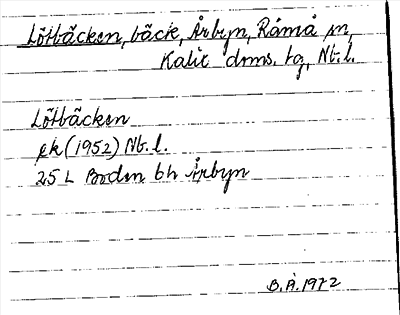 Lötbäcken, bäck, Årbyn, Råmå sn,
Kalix dmns. tg, Nb. l.
Lötbäcken
ek (1952) Nb. l.
25 L Boden bh Årbyn
B.Å. 1972